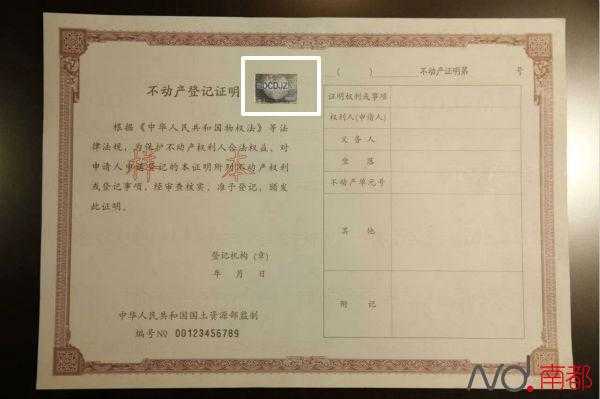 不动产登记证明
根据《中华人民共和国物权法》等法
律法规，为保护不动产权利人合法权益，对
申请人申请登记的本证明所列不动产权利
或登记事项，经审查核实，准予登记，颁发
此证明。
样本
登记机构（章）
年 月 日
中华人民共和国国土资源部监制
编号No 00123456789
（ ） 不动产证明第 号
证明权利或事项
权利人(申请人)
义务人
坐落
不动产单元号
其他
附记
南都